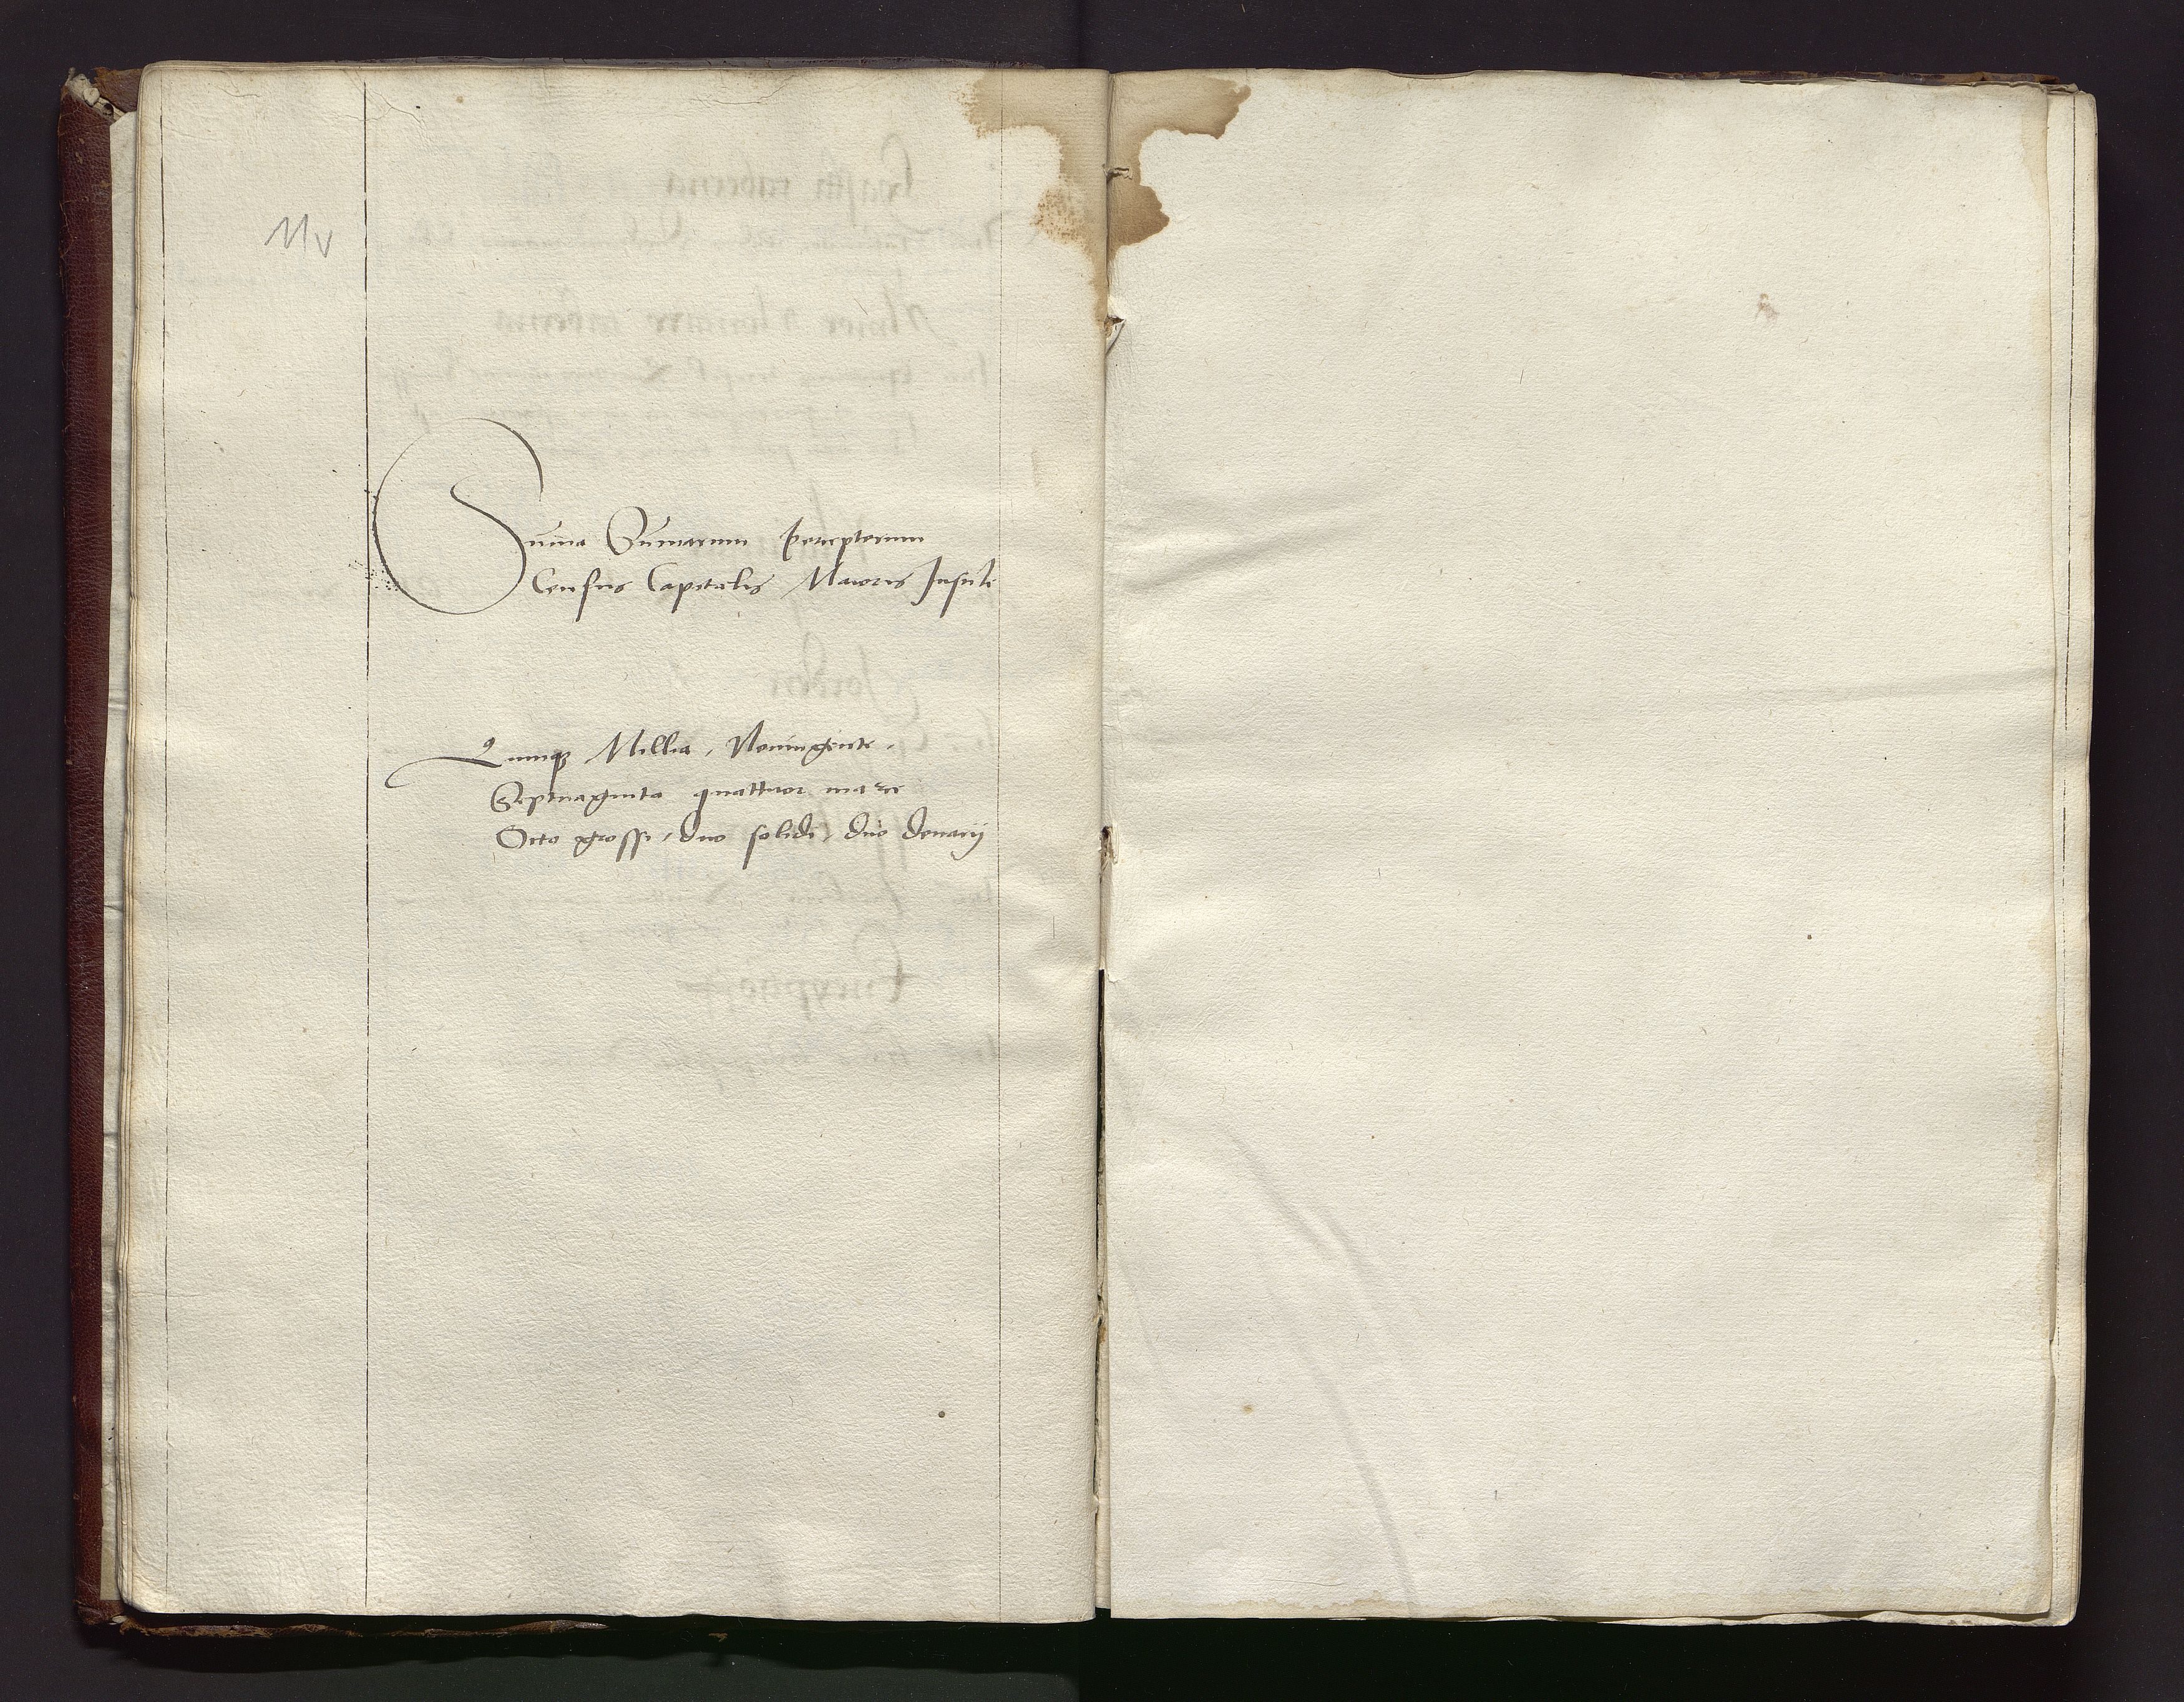 11v
Suma Sumarum perceptorum
Census Capitalis Maioris Insule
Quinque Millia, Noningente,
Septuaginta quattuor marce
Octo grossi, duo solidi, duo denarij